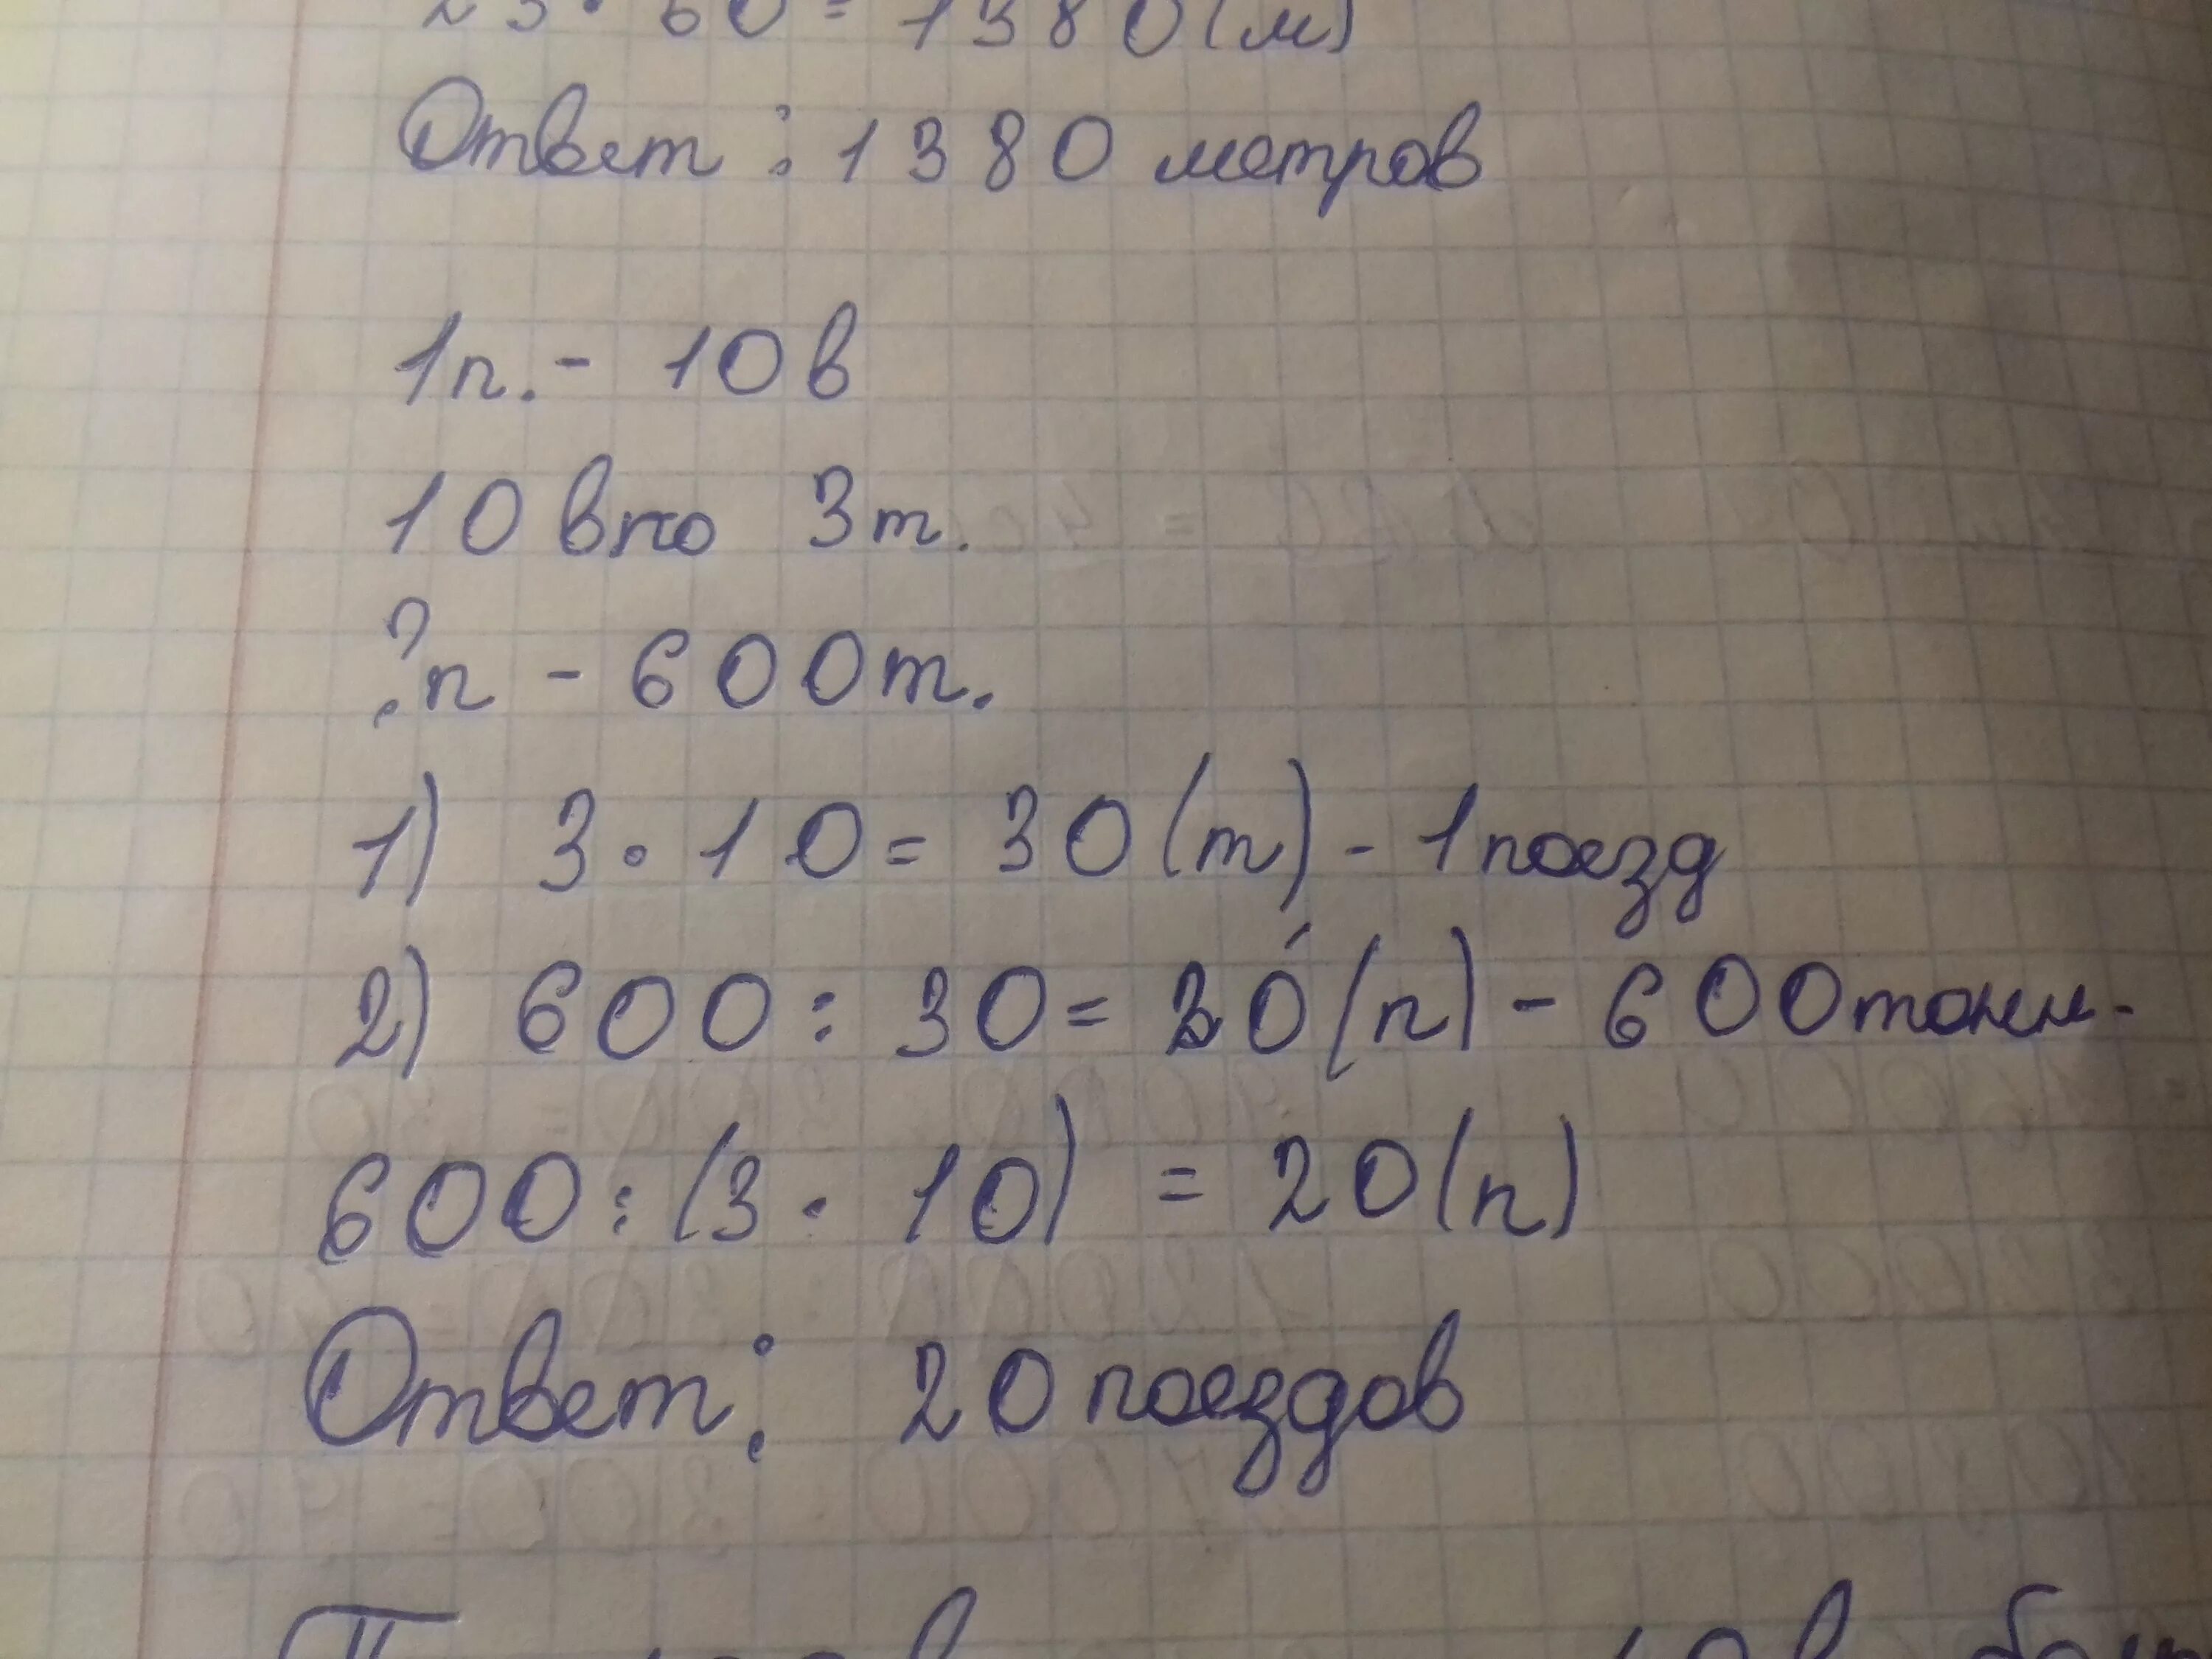 23 · 60 = 1380 (м)
Ответ : 1380 метров
1п. - 10 в
10 в по 3 т.
? п - 600 т.
1) 3 · 10 = 30 (т) - 1 поезд
2) 600 : 30 = 20 (п) - 600 тонн.
600 : (3 · 10) = 20 (п)
Ответ : 20 поездов